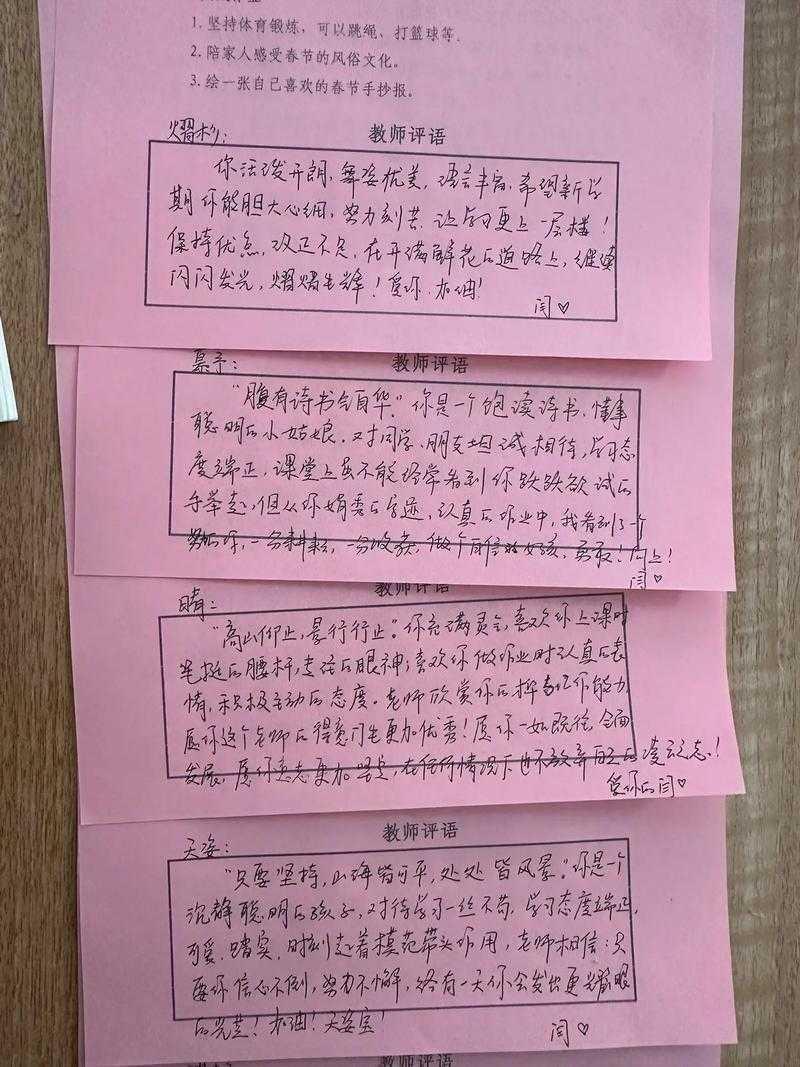 1. 坚持体育锻炼，可以跳绳、打篮球等。
2. 陪家人感受春节的风俗文化。
3. 绘一张自己喜欢的春节手抄报。
熠杉：
教师评语
你活泼开朗，舞姿优美，语言丰富，希望新学
期你能胆大心细，努力刻苦，让学习更上一层楼！
保持优点，改正不足，在开满鲜花的道路上，继续
闪闪发光，熠熠生辉！爱你，加油！
闫♡
慕予：
教师评语
“腹有诗书气自华。”你是一个饱读诗书、懂事
聪明的小姑娘。对同学、朋友坦诚相待，学习态
度端正，课堂上虽不能经常看到你跃跃欲试的
手举起，但从你娟秀的字迹，认真的作业中，我看到了一个
努力的你，一分耕耘，一分收获，做个自信的女孩，勇敢！向上！
闫♡
教师评语
晴：
“高山仰止，景行行止。”你充满灵气，喜欢你上课时
笔挺的腰杆，专注的眼神；喜欢你做作业时认真的表
情，积极主动的态度。老师欣赏你的组织能力
愿你这个老师的得意门生更加优秀！愿你一如既往，全面
发展，愿你意志更加坚定，在任何情况下也不放弃的凌云之志！
爱你的闫♡
教师评语
天姿：
“只要坚持，山海皆可平，处处皆风景。”你是一个
沉静聪明的孩子，对待学习一丝不苟，学习态度端正，
可爱、踏实，时刻起着模范带头作用，老师相信：只
要你信心不倒，努力不懈，终有一天你会发出更耀眼
的光芒！加油！天姿宝！
闫♡
教师评语